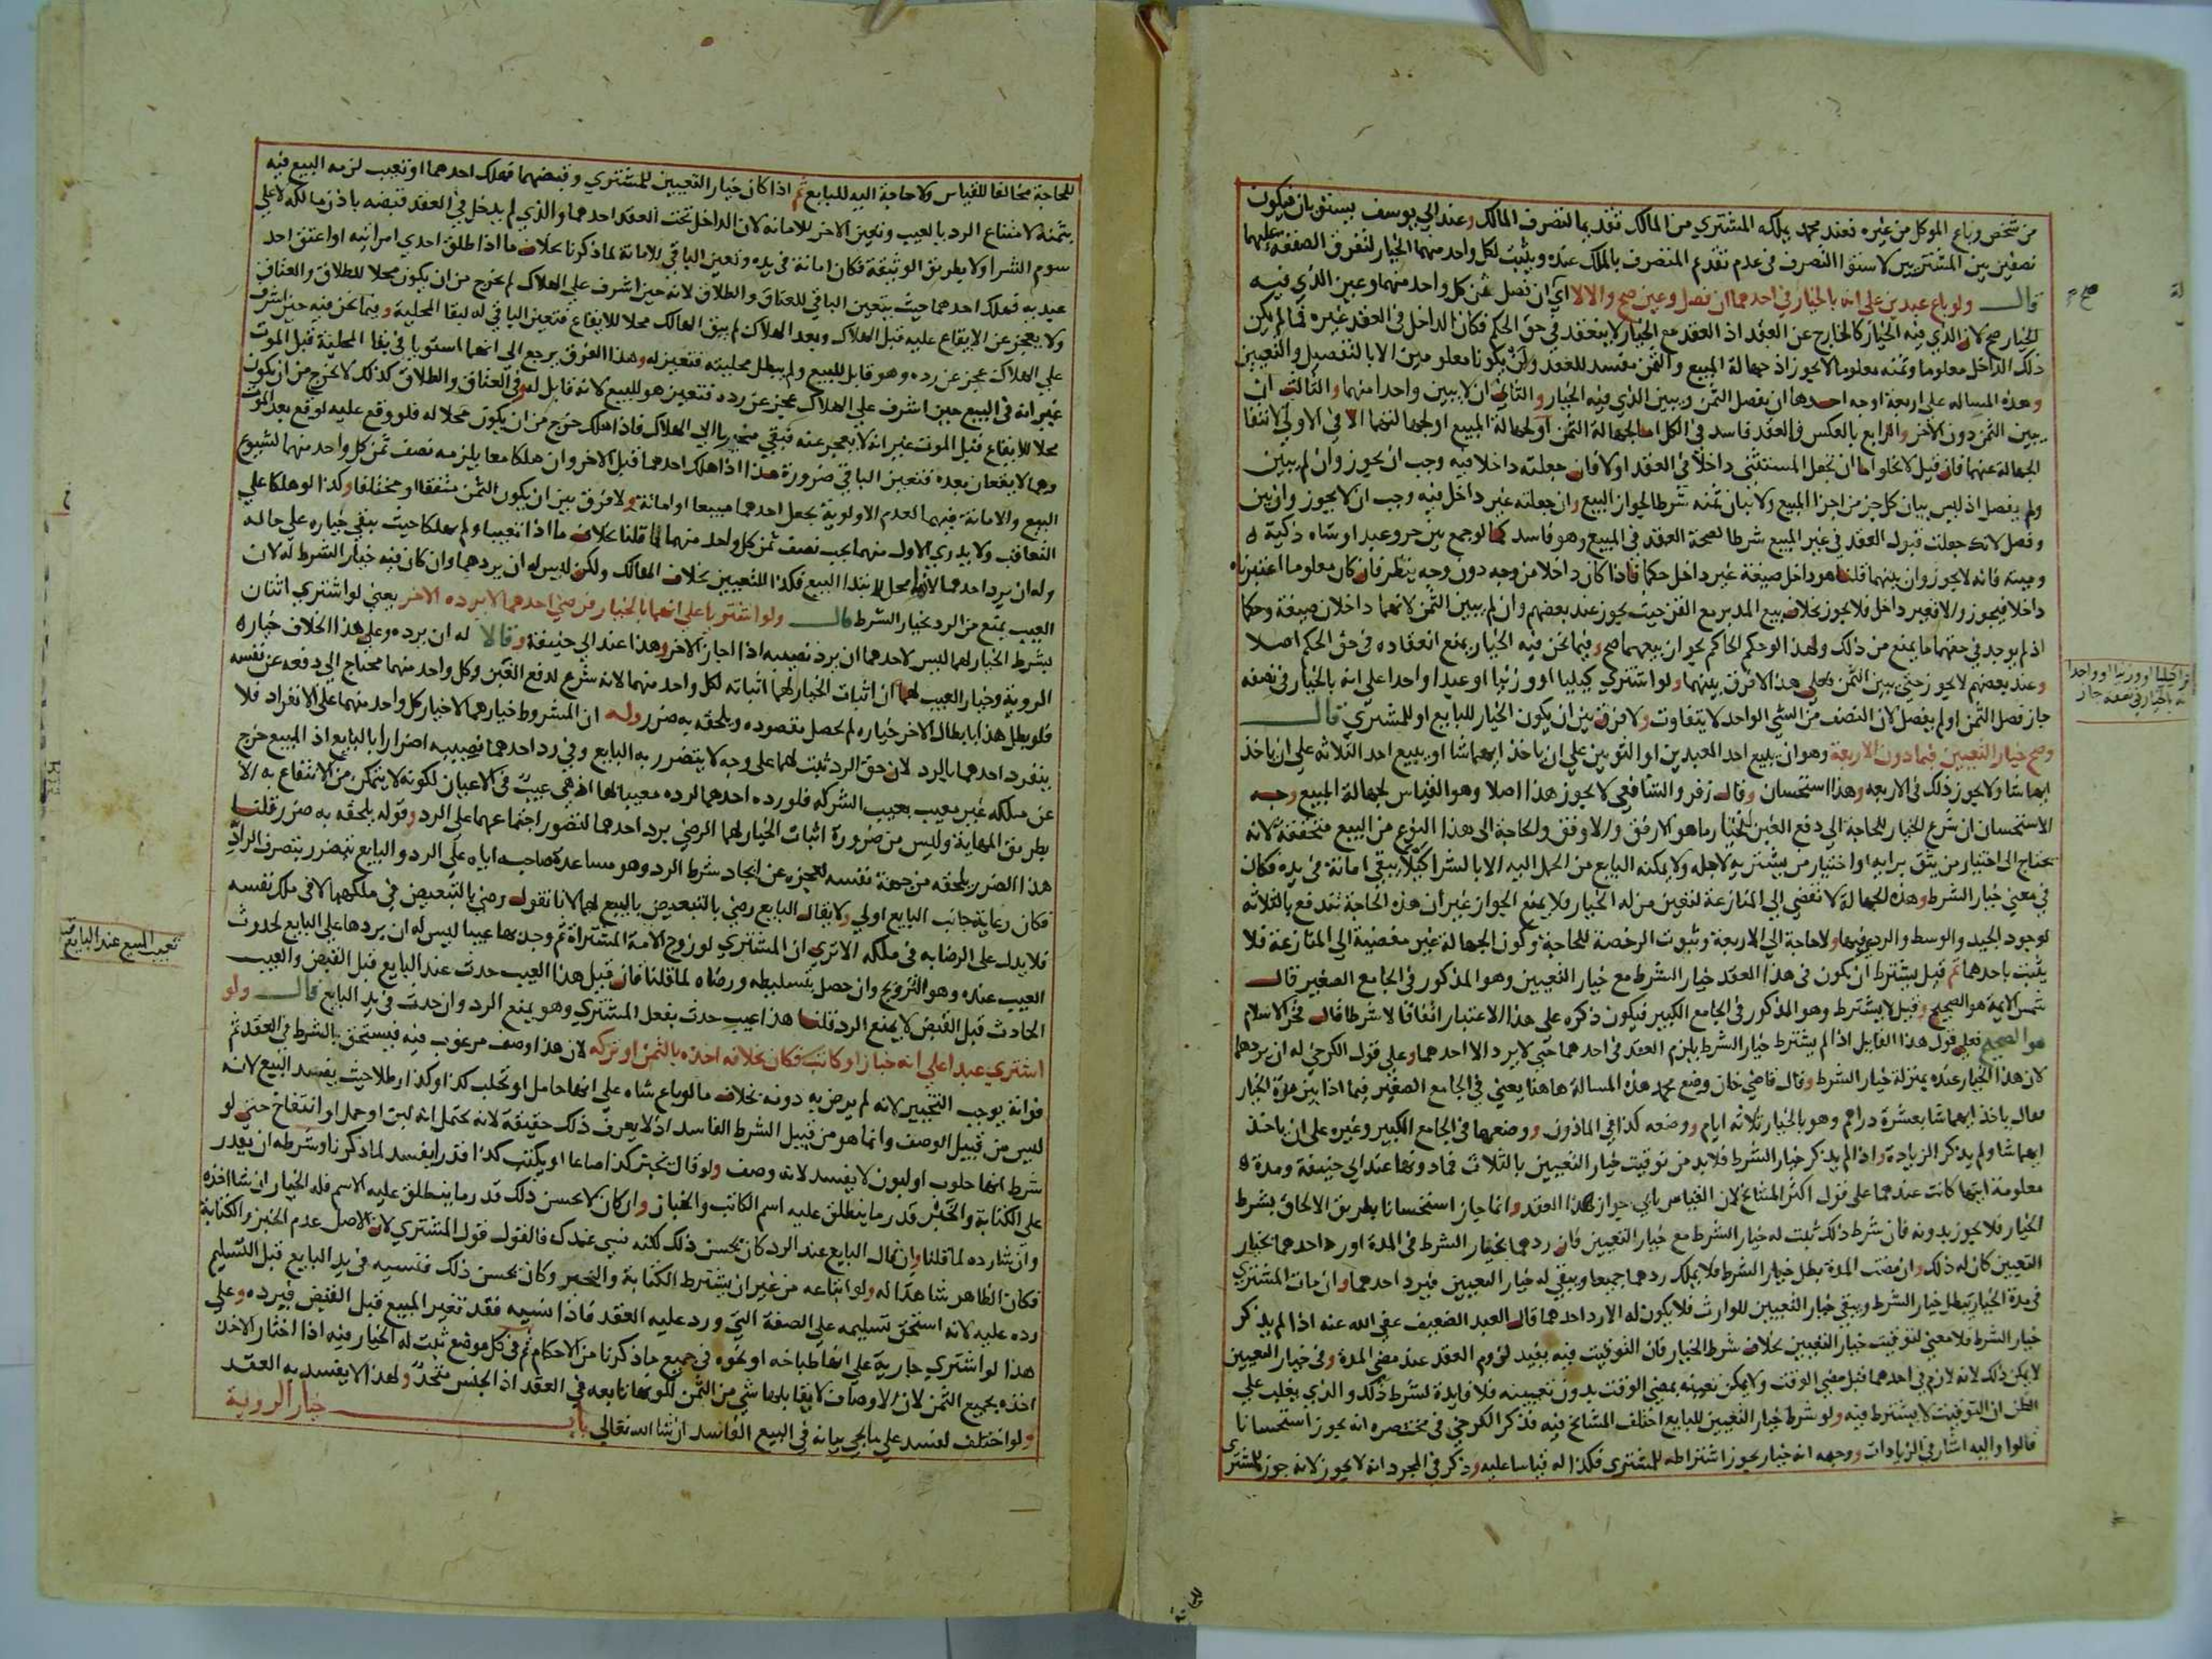 من شخص وباع الموكل من غيره فعند محمد يملكه المشتري من المالك تقديما لتصرف المالك وعند ابي يوسف يستويان فيكون
نصفين بين المشتريين لاستوا التصرف في عدم تقدم المتصرف بالملك عنده ويثبت لكل واحد منهما الخيار لتفرق الصفقة عليهما
قال ولو باع عبدين على انه بالخيار في احدهما ان فصل وعين صح والا لا اي ان فصل ثمن كل واحد منهما وعين الذي فيه
الخيار صح لان الذي فيه الخيار كالخارج عن العقد اذ العقد مع الخيار لا ينعقد في حق الحكم فكان الداخل في العقد غيره فما لم يكن
ذلك الداخل معلوما وثمنه معلوما لا يجوز اذ جهالة المبيع والثمن مفسد للعقد ولن يكونا معلومين الا بالتفصيل والتعيين
وهذه المساله على اربعة اوجه احدها ان يفصل الثمن ويبين الذي فيه الخيار والثاني ان لا يبين واحدا منهما والثالث ان
يبين الثمن دون الاخر والرابع بالعكس والعقد فاسد في الكل اما لجهالة الثمن او لجهالة المبيع او لجهالتهما الا في الاولى لانتفا
الجهالة عنهما فان قيل لا يخلوا اما ان تجعل المستثنى داخلا في العقد اولا فان جعلته داخلا فيه وجب ان يجوز وان لم يبين
ولم يفصل اذ ليس بيان كل جز من اجزا المبيع ولا بيان ثمنه شرطا لجواز البيع وان جعلته غير داخل فيه وجب ان لا يجوز وان بين
وفصل لانك جعلت قبول العقد في غير المبيع شرطا لصحة العقد في المبيع وهو فاسد كما لو جمع بين حر وعبد او شاه ذكية
وميتة فانه لا يجوز وان بينهما قلنا هو داخل صيغة غير داخل حكما فاذا كان داخلا من وجه دون وجه ينظر فان كان معلوما اعتبرناه
داخلا فيجوز والا فغير داخل فلا يجوز بخلاف بيع المدبر مع القن حيث يجوز عند بعضهم وان لم يبين الثمن لانهما داخلان صيغة وحكما
اذ لم يوجد في حقهما ما يمنع من ذلك ولهذا لو حكم الحاكم بجواز بيعهما صح وفيما نحن فيه الخيار يمنع انعقاده في حق الحكم اصلا
وعند بعضهم لا يجوز حتى يبين الثمن فعلى هذا لا فرق بينهما ولو اشترى كيليا او وزنيا او عبدا واحدا على انه بالخيار في نصفه
جاز فصل الثمن او لم يفصل لان النصف من الشي الواحد لا يتفاوت ولا فرق بين ان يكون الخيار للبايع او للمشتري قال
وصح خيار التعيين فيما دون الاربعة وهو ان يبيع احد العبدين او الثوبين على ان ياخذ ايهما شا او يبيع احد الثلاثه على ان ياخذ
ايها شا ولا يجوز ذلك في الاربعه وهذا استحسان وقال زفر والشافعي لا يجوز هذا اصلا وهو القياس لجهالة المبيع وجه
الاستحسان ان شرع الخيار للحاجة الى دفع الغبن ليختار ما هو الارفق والاوفق والحاجة الى هذا النوع من البيع متحققة لانه
يحتاج الى اختيار من يثق برايه او اختيار من يشتريه لاجله ولا يمكنه البايع من الحمل اليه الا بالشرا كيلا يبقى امانة في يده فكان
في معنى خيار الشرط وهذه الجهالة لا تفضي الى المنازعة لتعين من له الخيار فلا يمنع الجواز غير ان هذه الحاجة تندفع بالثلاثه
لوجود الجيد والوسط والردي فيها ولا حاجة الى الاربعة وثبوت الرخصة للحاجة وكون الجهالة غير مفضية الى المنازعة فلا
يثبت باحدهما ثم قيل يشترط ان يكون في هذا العقد خيار الشرط مع خيار التعيين وهو المذكور في الجامع الصغير قال
شمس الايمة هو الصحيح وقيل لا يشترط وهو المذكور في الجامع الكبير فيكون ذكره على هذا الاعتبار اتفاقا لا شرطا قال فخر الاسلام
هو الصحيح فعلى قول هذا القايل اذا لم يشترط خيار الشرط يلزم العقد في احدهما حتى لا يرد الا احدهما وعلى قول الكرخي له ان يردهما
لان هذا الخيار عنده بمنزلة خيار الشرط وقال قاضي خان وضع محمد هذه المسالة هاهنا يعني في الجامع الصغير فيما اذا بين مدة الخيار
فقال ياخذ ايهما شا بعشرة دراهم وهو بالخيار ثلاثه ايام ووضعه كذا في الماذون ووضعها في الجامع الكبير وغيره على ان ياخذ
ايهما شا ولم يذكر الزيادة واذا لم يذكر خيار الشرط فلا بد من توقيت خيار التعيين بالثلاث فما دونها عند ابي حنيفة ومدة
معلومة ايتها كانت عندهما على قول اكثر المشايخ لان القياس يابى جواز هذا العقد وانما جاز استحسانا بطريق الالحاق بشرط
الخيار فلا يجوز بدونه فان شرط ذلك ثبت له خيار الشرط مع خيار التعيين فان ردهما بخيار الشرط في المدة او رد احدهما بخيار
التعيين كان له ذلك وان مضت المدة بطل خيار الشرط فلا يملك ردهما جميعا ويبقى له خيار التعيين فيرد احدهما وان مات المشتري
في مدة الخيار يبطل خيار الشرط ويبقى خيار التعيين للوارث فلا يكون له الا رد احدهما قال العبد الضعيف عفى الله عنه اذا لم يذكر
خيار الشرط فلا معنى لتوقيت خيار التعيين بخلاف شرط الخيار فان التوقيت فيه يفيد لزوم العقد عند مضي المدة وفي خيار التعيين
لا يمكن ذلك لانه لازم في احدهما قبل مضي الوقت ولا يمكن تعينه بمضي الوقت بدون تعيينه فلا فايدة لشرط ذلك والذي يغلب على
الظن ان التوقيت لا يشترط فيه ولو شرط خيار التعيين للبايع اختلف المشايخ فيه فذكر الكرخي في مختصره انه يجوز استحسانا
قالوا واليه اشار في الزيادات ووجهه انه خيار يجوز اشتراطه للمشتري فكذا له قياسا عليه وذكر في المجرد انه لا يجوز لانه جوز للمشتري
صح
للحاجة مخالفا للقياس ولا حاجة اليه للبايع ثم اذا كان خيار التعيين للمشتري وقبضهما فهلك احدهما او تعيب لزمه البيع فيه
بثمنه لامتناع الرد بالعيب وتعين الاخر للامانه لان الداخل تحت العقد احدهما والذي لم يدخل في العقد قبضه باذن مالكه لا على
سوم الشرا ولا بطريق الوثيقة فكان امانة في يده وتعين الباقي للامانة لما ذكرنا بخلاف ما اذا طلق احدى امراتيه او اعتق احد
عبديه فهلك احدهما حيث يتعين الباقي للعتاق والطلاق لانه حين اشرف على الهلاك لم يخرج من ان يكون محلا للطلاق والعتاق
ولا يعجز عن الايقاع عليه قبل الهلاك وبعد الهلاك لم يبق الهالك محلا للايقاع فتعين الباقي له لبقا المحلية وفيما نحن فيه حين اشرف
على الهلاك عجز عن رده وهو قابل للبيع ولم يبطل محليته فتعين له وهذا الفرق يرجع الى انهما استويا في بقا المحلية قبل الموت
غير انه في البيع حين اشرف على الهلاك عجز عن رده فتعين هو للبيع لانه قابل له وفي العتاق والطلاق كذلك لا يخرج من ان يكون
محلا للايقاع قبل الموت غير انه لا يعجز عنه فبقي مخيرا الى الهلاك فاذا هلك خرج من ان يكون محلا له فلو وقع عليه لوقع بعد الموت
وهما لا يقعان بعده فتعين الباقي ضرورة هذا اذا هلك احدهما قبل الاخر وان هلكا معا يلزمه نصف ثمن كل واحد منهما لشيوع
البيع والامانة فيهما لعدم الاولوية بجعل احدهما مبيعا او امانة ولا فرق بين ان يكون الثمن متفقا او مختلفا وكذا لو هلكا على
التعاقب ولا يدرى الاول منهما يجب نصف ثمن كل واحد منهما لما قلنا بخلاف ما اذا تعيبا ولم يهلكا حيث يبقى خياره على حاله
وله ان يرد احدهما لانه محل لابتدا البيع فكذا للتعيين بخلاف الهالك ولكن ليس له ان يردهما وان كان فيه خيار الشرط له لان
العيب يمنع من الرد بخيار الشرط قال ولو اشتريا على انهما بالخيار فرضي احدهما لا يرده الاخر يعني لو اشترى اثنان
بشرط الخيار لهما ليس لاحدهما ان يرد نصيبه اذا اجاز الاخر وهذا عند ابي حنيفة وقالا له ان يرده وعلى هذا الخلاف خيار
الروية وخيار العيب لهما ان اثبات الخيار لهما اثباته لكل واحد منهما لانه شرع لدفع الغبن وكل واحد منهما محتاج الى دفعه عن نفسه
فلو بطل هذا بابطال الاخر خياره لم يحصل مقصوده ويلحقه به ضرر وله ان المشروط خيارهما لا خيار كل واحد منهما على الانفراد فلا
ينفرد احدهما بالرد لان حق الرد ثبت لهما على وجه لا يتضرر به البايع وفي رد احدهما نصيبه اضرارا بالبايع اذ المبيع خرج
عن ملكه غير معيب بعيب الشركه فلو رده احدهما لرده معيبا بها اذ هي عيب في الاعيان لكونه لا يتمكن من الانتفاع به الا
بطريق المهاياة وليس من ضرورة اثبات الخيار لهما الرضى برد احدهما لتصور اجتماعهما على الرد وقوله يلحقه به ضرر قلنا
هذا الضرر يلحقه من جهة نفسه لعجزه عن ايجاد شرط الرد وهو مساعدة صاحبه اياه على الرد والبايع يتضرر بتصرف الراد
فكان رعاية جانب البايع اولى ولا يقال البايع رضي بالتبعيض بالبيع لهما لانا نقول رضي بالتبعيض في ملكهما لا في ملك نفسه
فلا يدل على الرضا به في ملكه الا ترى ان المشتري لو زوج الامة المشتراة ثم وجد بها عيبا ليس له ان يردها على البايع لحدوث
العيب عنده وهو التزويج وان حصل بتسليطه ورضاه لما قلنا فان قيل هذا العيب حدث عند البايع قبل القبض والعيب
الحادث قبل القبض لا يمنع الرد قلنا هذا عيب حدث بفعل المشتري وهو يمنع الرد وان حدث في يد البايع قال ولو
اشترى عبدا على انه خباز او كاتب فكان بخلافه اخذه بالثمن او تركه لان هذا وصف مرغوب فيه فيستحق بالشرط في العقد ثم
فواته يوجب التخيير لانه لم يرض به دونه بخلاف ما لو باع شاه على انها حامل او تحلب كذا وكذا رطلا حيث يفسد البيع لانه
ليس من قبيل الوصف وانما هو من قبيل الشرط الفاسد اذ لا يعرف ذلك حقيقة لانه يحتمل انه لبن او حمل او انتفاخ حتى لو
شرط انها حلوب او لبون لا يفسد لانه وصف ولو قال يخبز كذا صاعا او يكتب كذا قدرا يفسد لما ذكرنا وشرطه ان يقدر
على الكتابة والخبز قدر ما ينطلق عليه اسم الكاتب والخباز وان كان لا يحسن ذلك قدر ما ينطلق عليه الاسم فله الخيار ان شا اخذه
وان شا رده لما قلنا وان قال البايع عند الرد كان يحسن ذلك لكنه نسي عندك فالقول قول المشتري لان الاصل عدم الخبز والكتابة
فكان الظاهر شاهدا له ولو ابتاعه من غير ان يشترط الكتابة والخبز وكان يحسن ذلك فنسيه في يد البايع قبل التسليم
رده عليه لانه استحق تسليمه على الصفة التي ورد عليه العقد فاذا نسيه فقد تغير المبيع قبل القبض فيرده وعلى
هذا لو اشترى جارية على انها طباخه او نحوه في جميع ما ذكرنا من الاحكام ثم في كل موضع ثبت له الخيار فيه اذا اختار الاخذ
اخذه بجميع الثمن لان الاوصاف لا يقابلها شي من الثمن لكونها تابعه في العقد اذ الجنس متحد ولهذا لا يفسد به العقد
ولو اختلف لفسد على ما يجي بيانه في البيع الفاسد ان شا الله تعالى باب خيار الروية
تعيب المبيع عند البايع